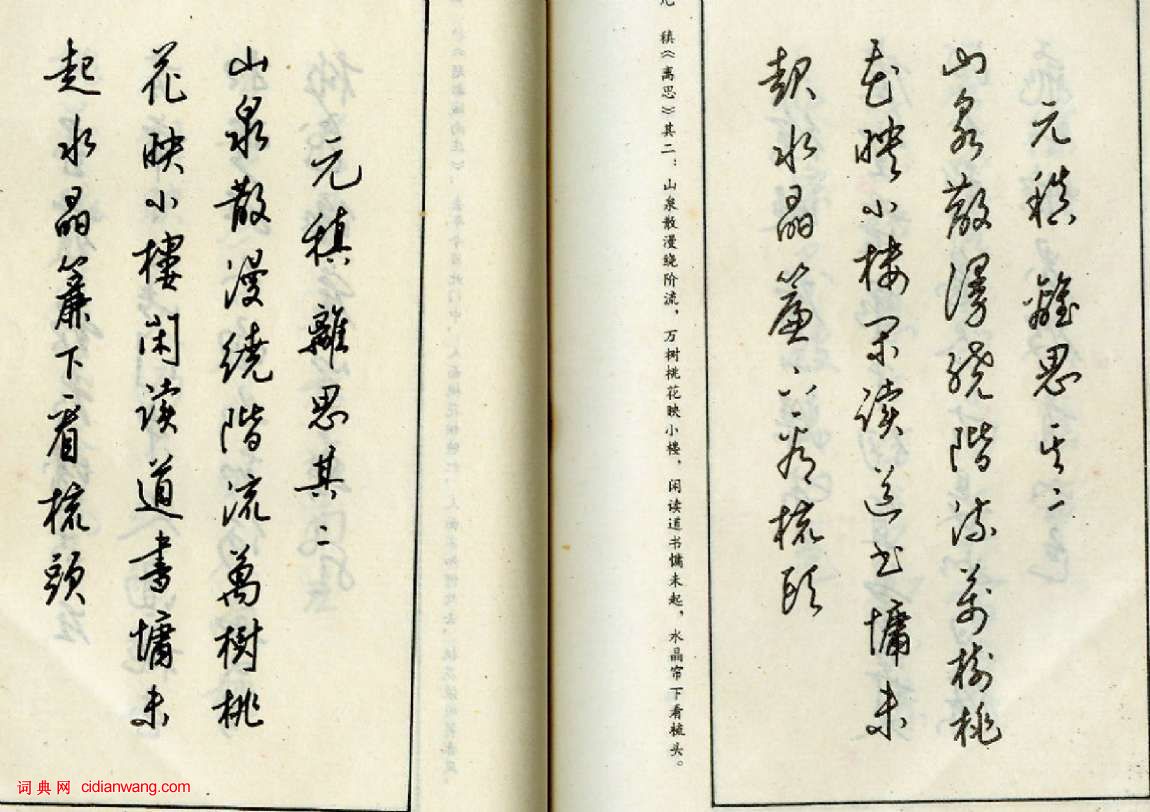 元稹離思其二
山泉散漫繞階流萬樹桃
花映小樓闲读道書慵未
起水晶簾下看梳頭
元稹《离思》其二：山泉散漫绕阶流，万树桃花映小楼，闲读道书慵未起，水晶帘下看梳头。
元稹離思其二
山泉散漫繞階流萬樹桃
花映小樓闲读道書慵未
起水晶簾下看梳頭
词典网 cidianwang.com